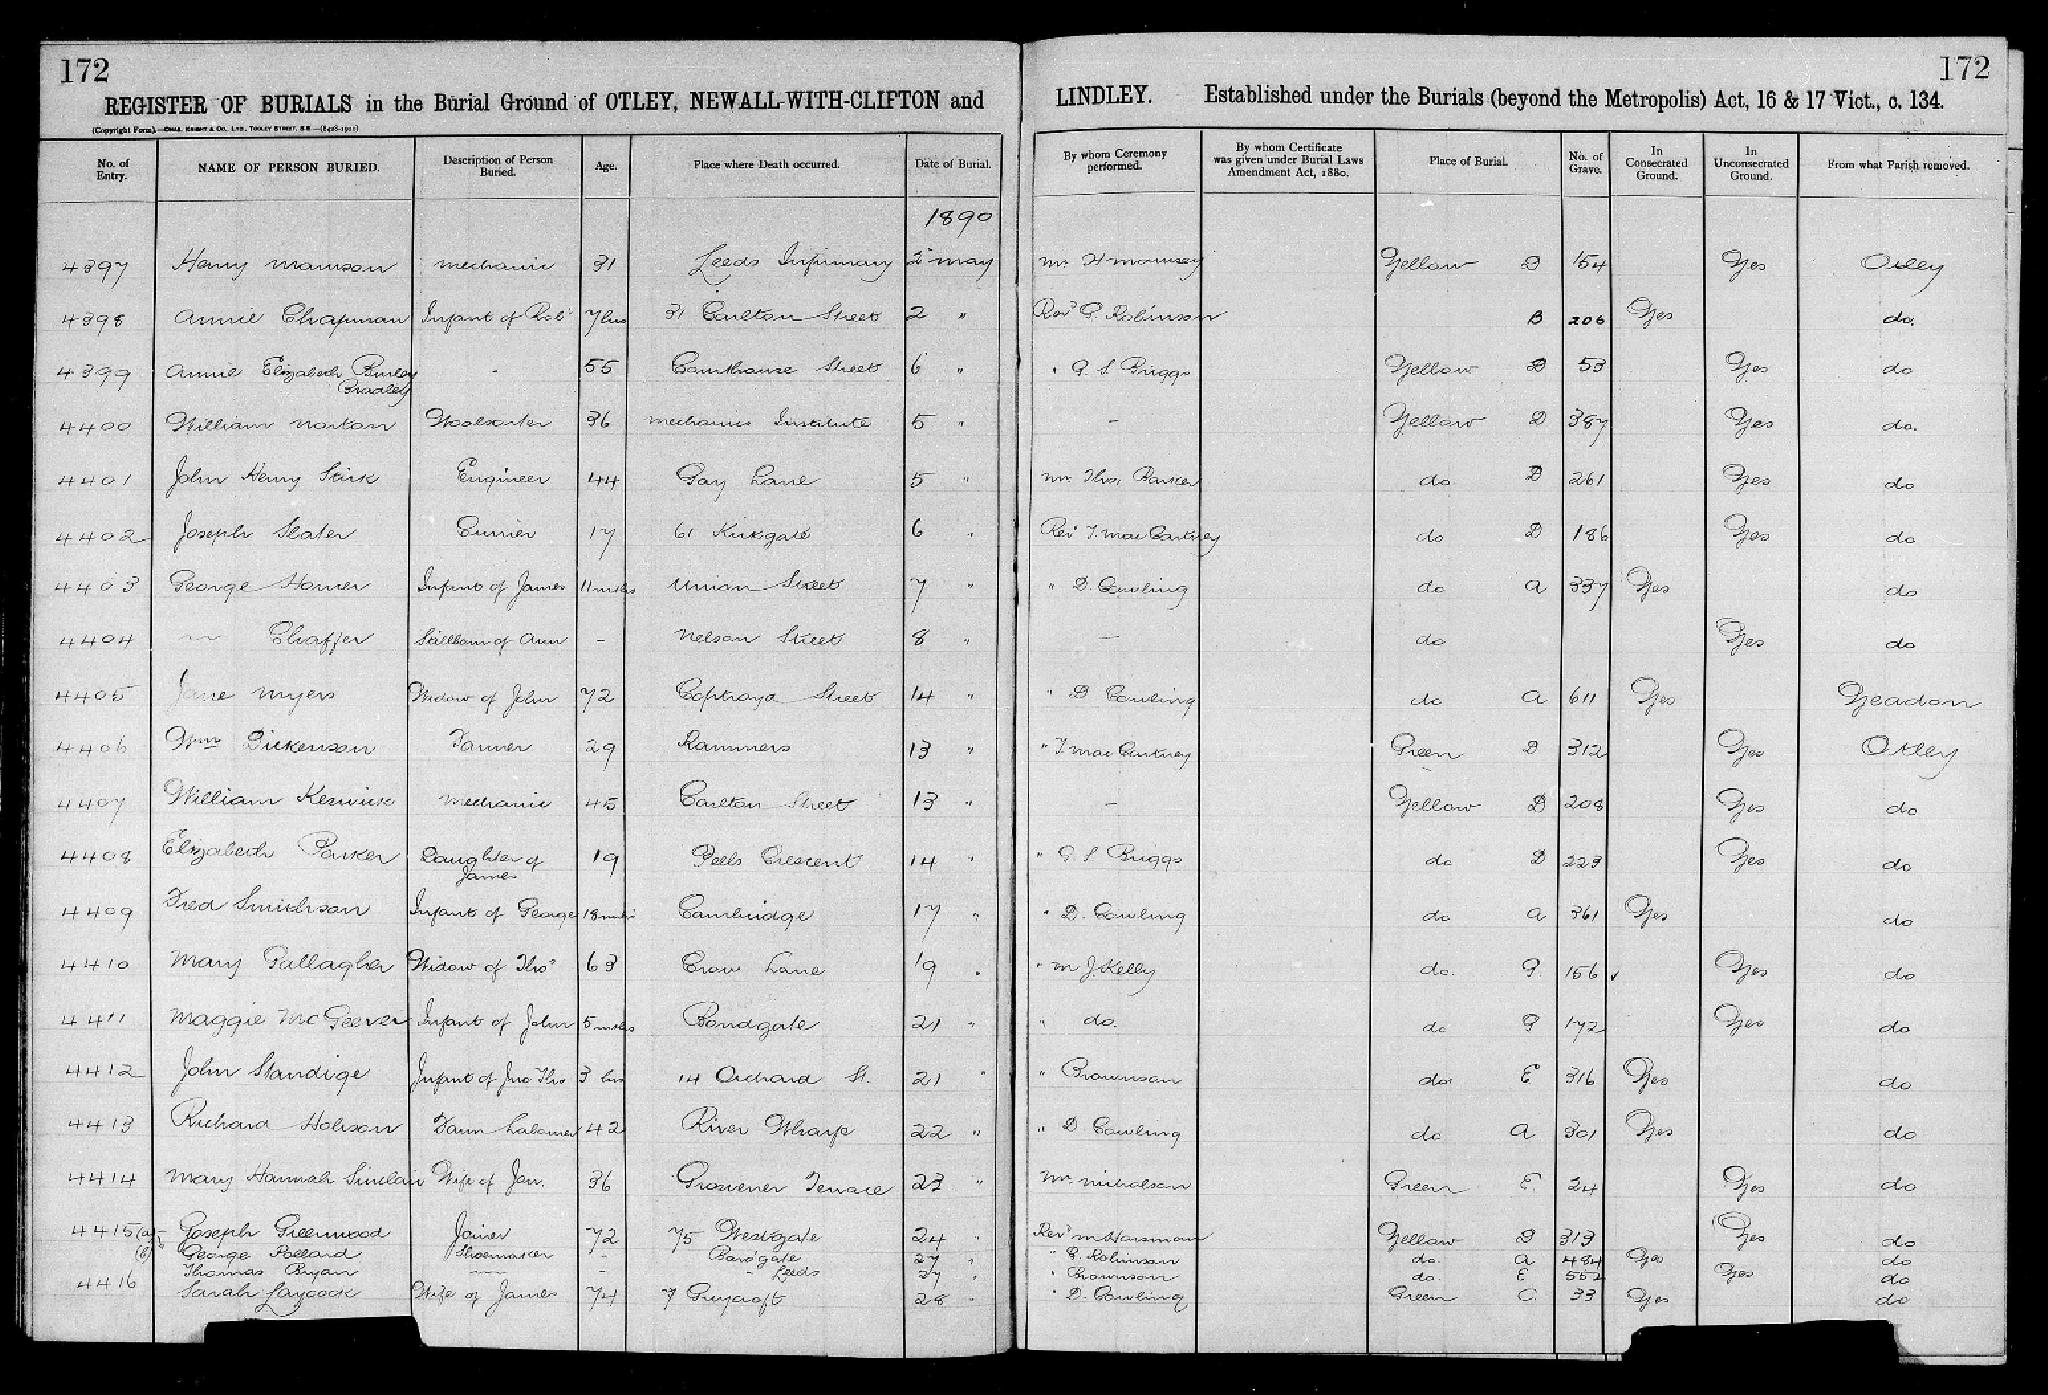 172
172
REGISTER OF BURIALS in the Burial Ground of OTLEY, NEWALL-WITH-CLIFTON and LINDLEY. Established under the Burials (beyond the Metropolis) Act, 16 & 17 Vict., c. 134.
(Copyright Form).—CHAS. KNIGHT & CO. LTD., TOOLEY STREET, S.E.
No. of Entry. NAME OF PERSON BURIED. Description of Person Buried. Age. Place where Death occurred. Date of Burial. By whom Ceremony performed. By whom Certificate was given under Burial Laws Amendment Act, 1880. Place of Burial. No. of Grave. In Consecrated Ground. In Unconsecrated Ground. From what Parish removed.
1890
4397 Henry mechanic 31 Leeds Infirmary 2 may Mr H mounsey Yellow D 154 Yes Otley
4398 Annie Chapman Infant of Robt 7 hrs 31 Carlton Street 2 " Revd P. Robinson B 206 Yes do.
4399 Annie Elizabeth Burley Bradley - 55 Street 6 " " Briggs Yellow D 53 Yes do
4400 William Norton Woolsorter 36 mechanics Institute 5 " - Yellow D 387 Yes do.
4401 John Henry Stirk Engineer 44 Gay Lane 5 " Mr Thos. Barker do D 261 Yes do
4402 Joseph Slater Currier 17 61 Kirkgate 6 " Rev T. Mac Cartney do D 186 Yes do
4403 George Homer Infant of James 11 mths Union Street 7 " " D. Cowling do A 337 Yes do
4404 Chaffer Stillborn of Ann - Nelson Street 8 " - do Yes do
4405 Jane Myers Widow of John 72 Street 14 " " D Cowling do A 611 Yes Yeadon
4406 Wm Dickenson 29 Rammers 13 " " T Mac Cartney Green D 312 Yes Otley
4407 William Keswick mechanic 45 Carlton Street 13 " - Yellow D 208 Yes do
4408 Elizabeth Parker Daughter of James 19 Peels Crescent 14 " " Briggs do D 223 Yes do
4409 Fred Smithson Infant of George 18 mths Cambridge 17 " " D. Cowling do A 361 Yes do
4410 Mary Gallagher Widow of Thos 63 Crow Lane 19 " " M J. Kelly do. 156 Yes do
4411 Maggie McGeever Infant of John 5 mths Bondgate 21 " " do. do 172 Yes do
4412 John Standige Infant of Jno Thos 3 hrs 14 Orchard St. 21 " " Brownson do E 316 Yes do
4413 Richard Hobson Farm Labourer 42 River Wharfe 22 " " D Cowling do A 301 Yes do
4414 Mary Hannah Sinclair Wife of Jas. 36 Grosvener Terrace 23 " Mr Nicholson Green E. 24 Yes do
4415 (a) Joseph Greenwood Joiner 72 75 Westgate 24 " Revd Yellow D 313 Yes do
(b) George Pollard Shoemaker - Bondgate 27 " " P. Robinson do. A 484 Yes do
Thomas Ryan - Leeds 27 " " Brownson do. E 552 Yes do
4416 Sarah Laycock Wife of James 74 7 Guycroft 28 " " D. Cowling Green C. 33 Yes do